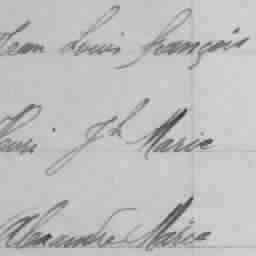 Jean Louis François
Henri Jh Marie
Alexandre Marie